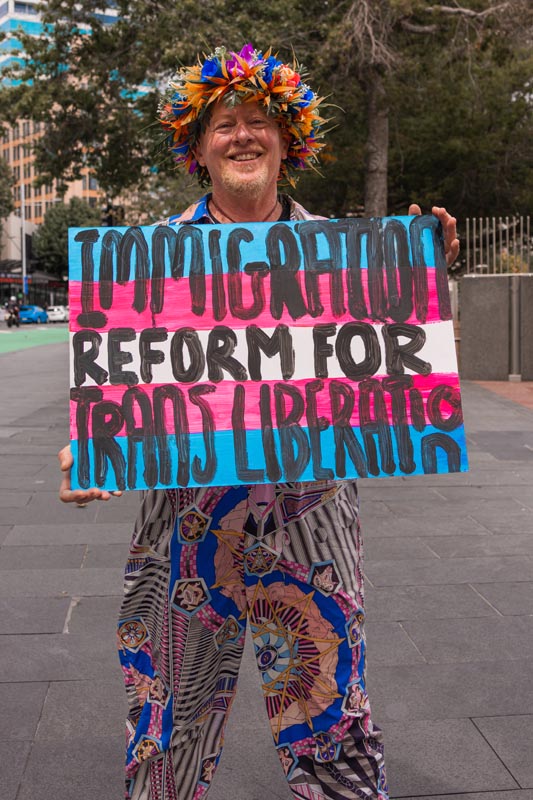 IMMIGRATION
REFORM FOR
TRANS LIBERATION